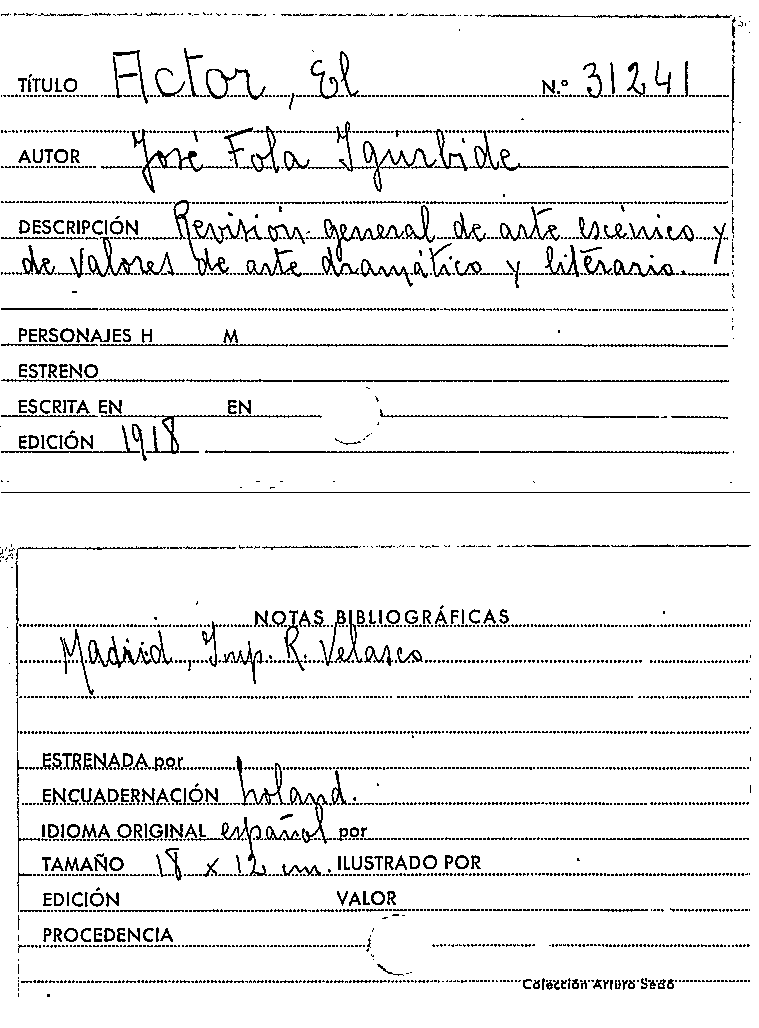 TÍTULO Actor, El N.º 31241
AUTOR José Fola Igúrbide
DESCRIPCIÓN Revisión general de arte escénico y
de valores de arte dramático y literario.
PERSONAJES H M
ESTRENO
ESCRITA EN EN
EDICIÓN 1918
NOTAS BIBLIOGRÁFICAS
Madrid, Imp. R. Velasco
ESTRENADA por
ENCUADERNACIÓN holand.
IDIOMA ORIGINAL español por
TAMAÑO 18 x 12 cm. ILUSTRADO POR
EDICIÓN VALOR
PROCEDENCIA
Colección Arturo Sedó